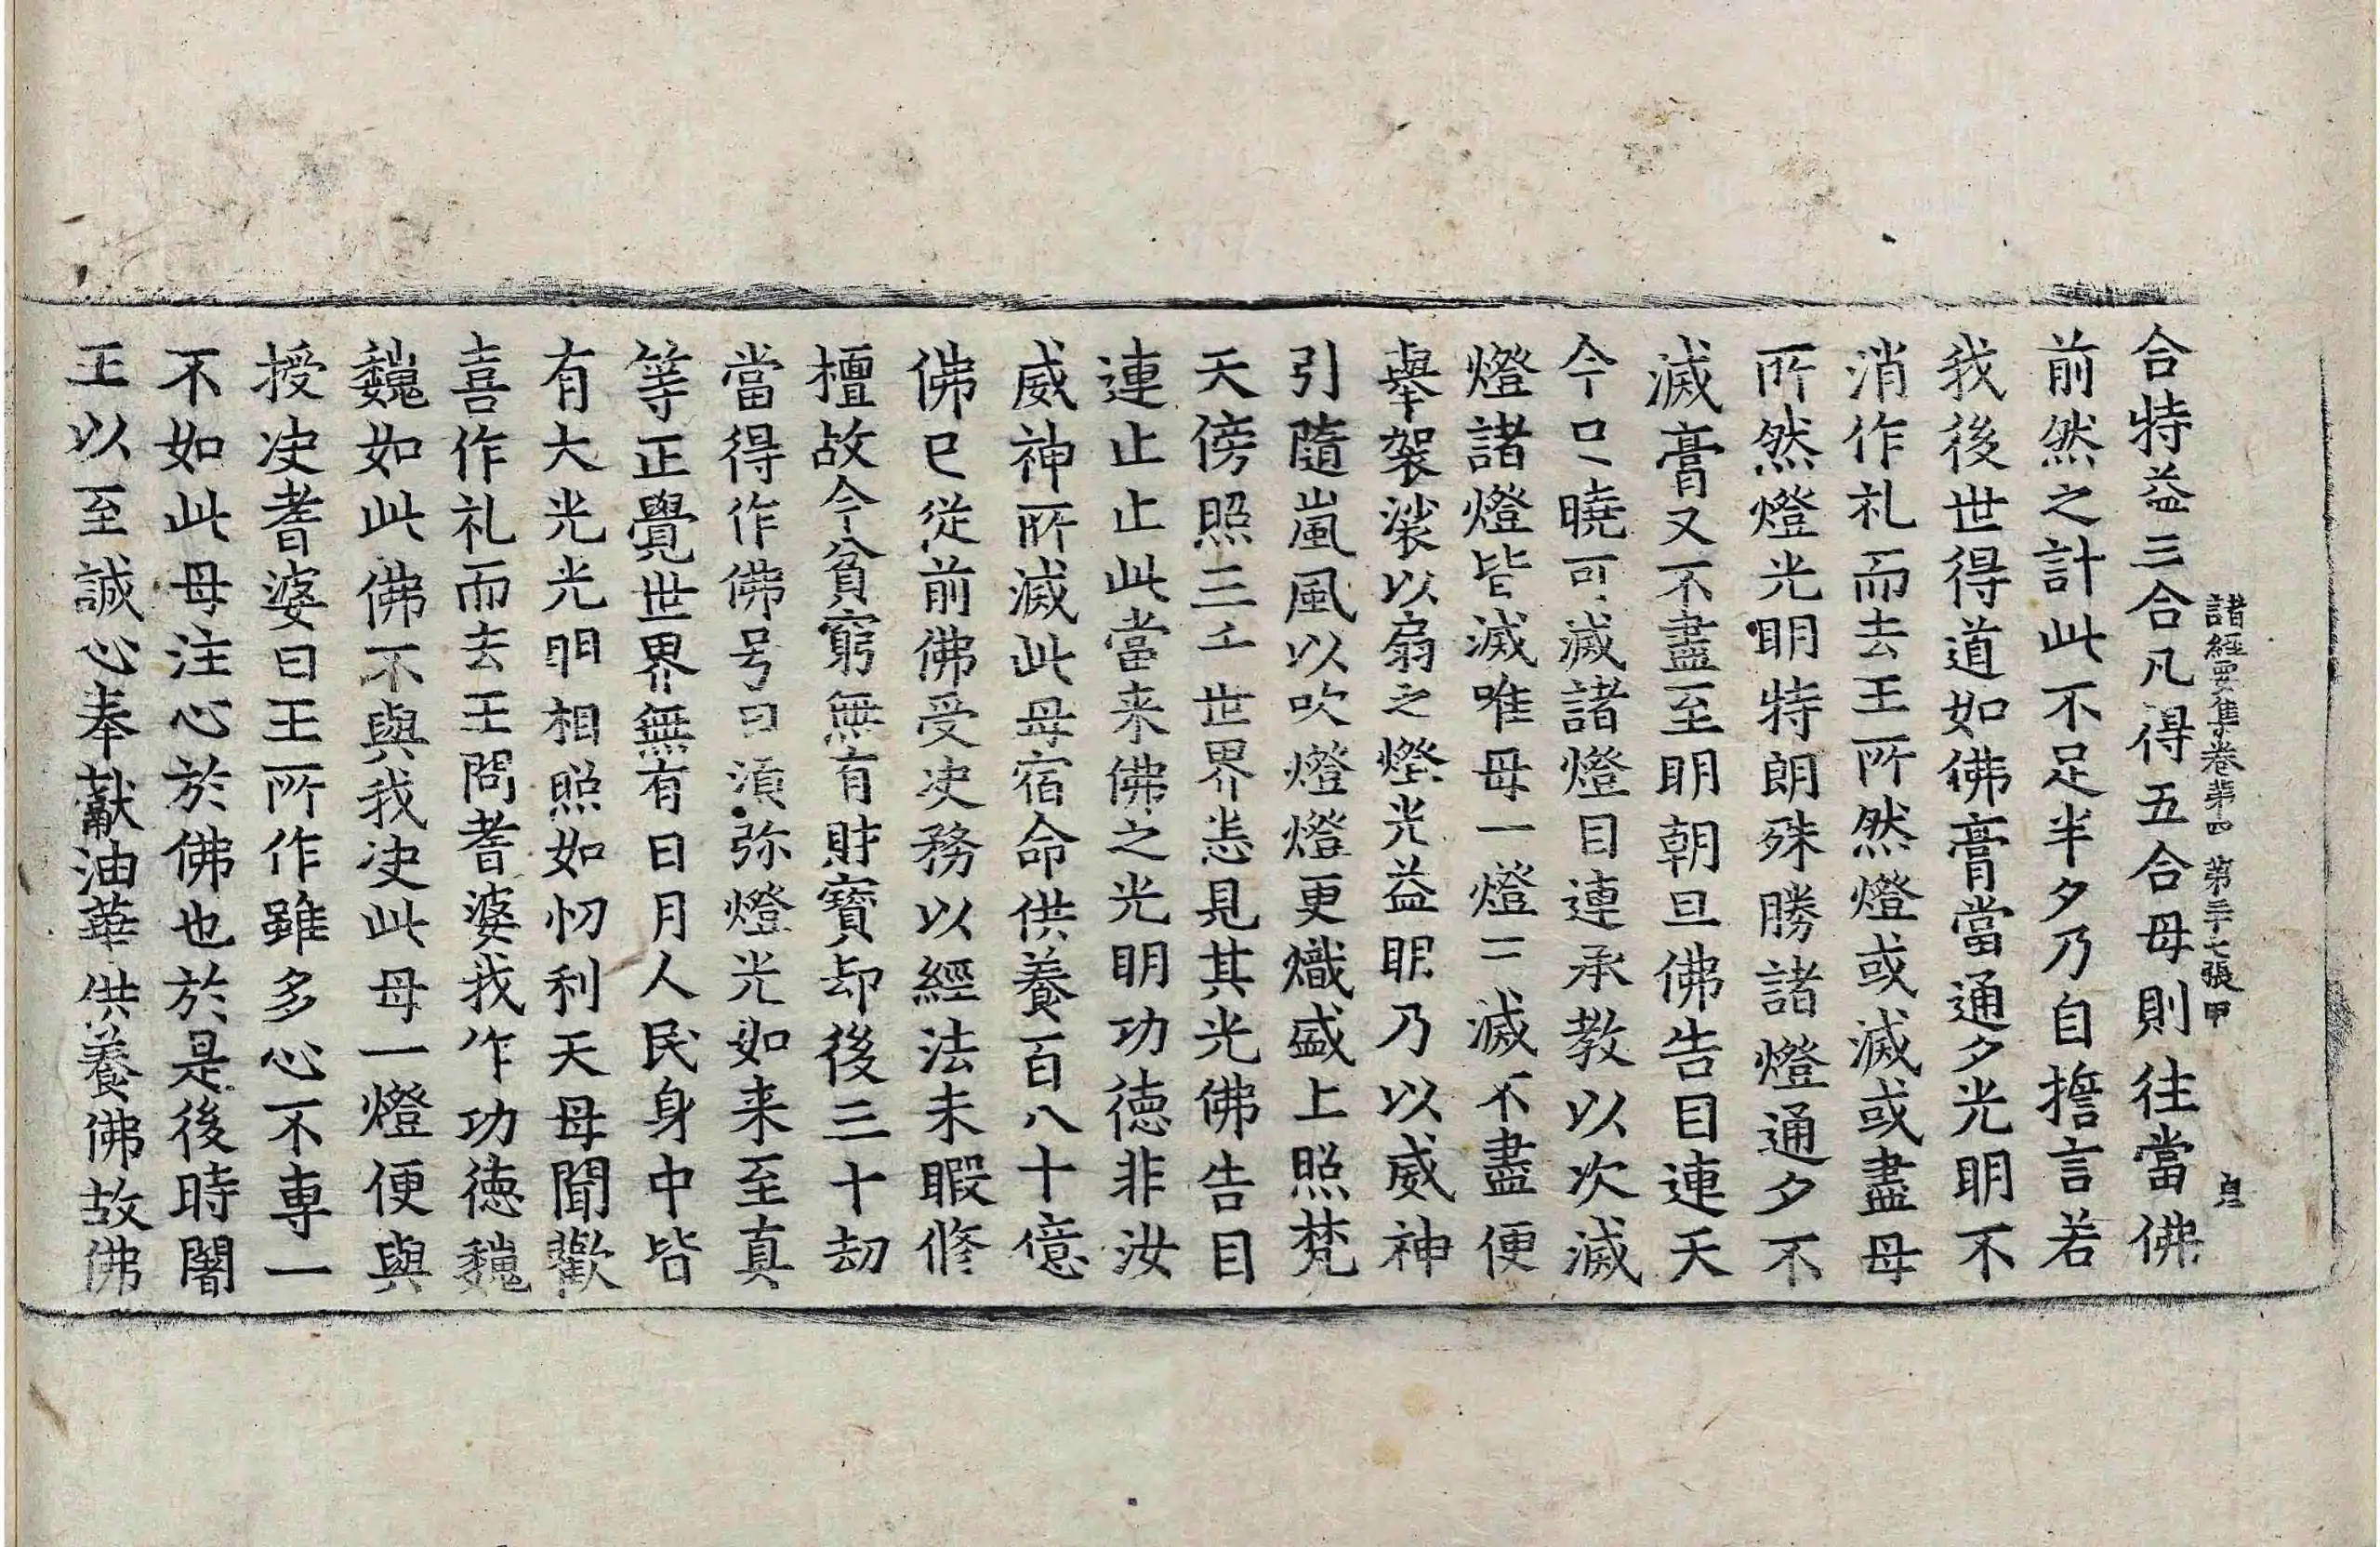 諸經要集卷苐四　第二十七張　甲
合特益三合凡得五合母則往當佛
前然之計此不足半夕乃自擔言若
我後世得道如佛膏當通夕光明不
消作礼而去王所然燈或滅或盡母
所然燈光明特朗殊勝諸燈通夕不
滅膏又不盡至明朝旦佛告目連天
今已曉可滅諸燈目連承教以次滅
燈諸燈皆滅唯母一燈三滅不盡便
舉袈裟以扇之燈光益明乃以威神
引隨嵐風以吹燈燈更熾盛上照梵
天傍照三千世界悉見其光佛告目
連止止此當来佛之光明功德非汝
威神所滅此母宿命供養百八十億
佛已從前佛受决務以經法未暇修
檀故今貧窮無有財寶却後三十劫
當得作佛号曰湏弥燈光如来至真
等正覺世界無有日月人民身中皆
有大光光明相照如忉利天母聞歡
喜作礼而去王問耆婆我作功德巍
巍如此佛不與我决此母一燈便與
授决耆婆曰王所作雖多心不專一
不如此母注心於佛也於是後時闍
王以至誠心奉獻油華供養佛故佛